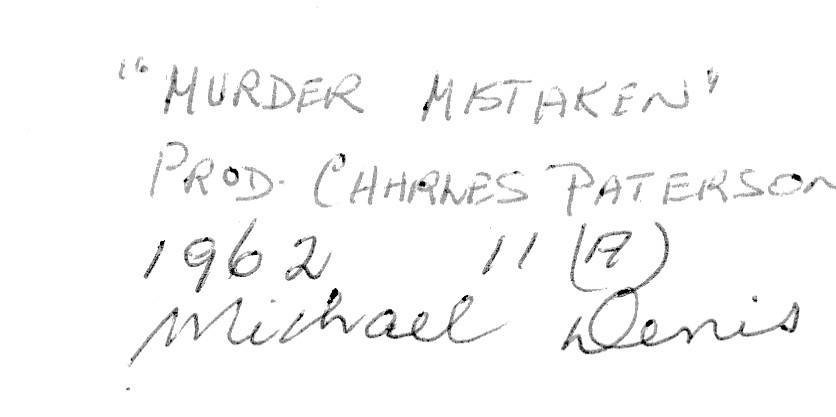 "MURDER MISTAKEN"
PROD. CHARLES PATERSON
1962 11 (A)
Michael Denis